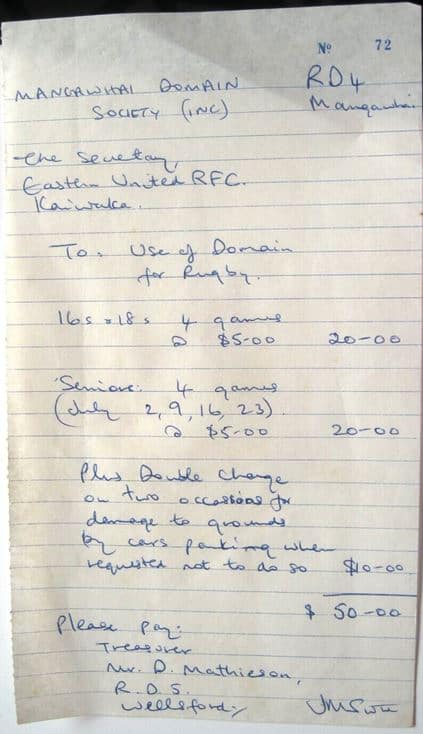 No 72
RD4
Mangawhai
MANGAWHAI DOMAIN
SOCIETY (INC)
The Secretary,
Eastern United RFC.
Kaiwaka.
To: Use of Domain
for Rugby.
16s & 18s 4 games
@ $5-00 20-00
Seniors: 4 games
(July 2, 9, 16, 23)
@ $5-00 20-00
Plus Double Charge
on two occassions for
damage to grounds
by cars parking when
requested not to do so $10-00
$ 50-00
Please pay:
Treasurer
Mr. D. Mathieson,
R.D.5.
Wellsford